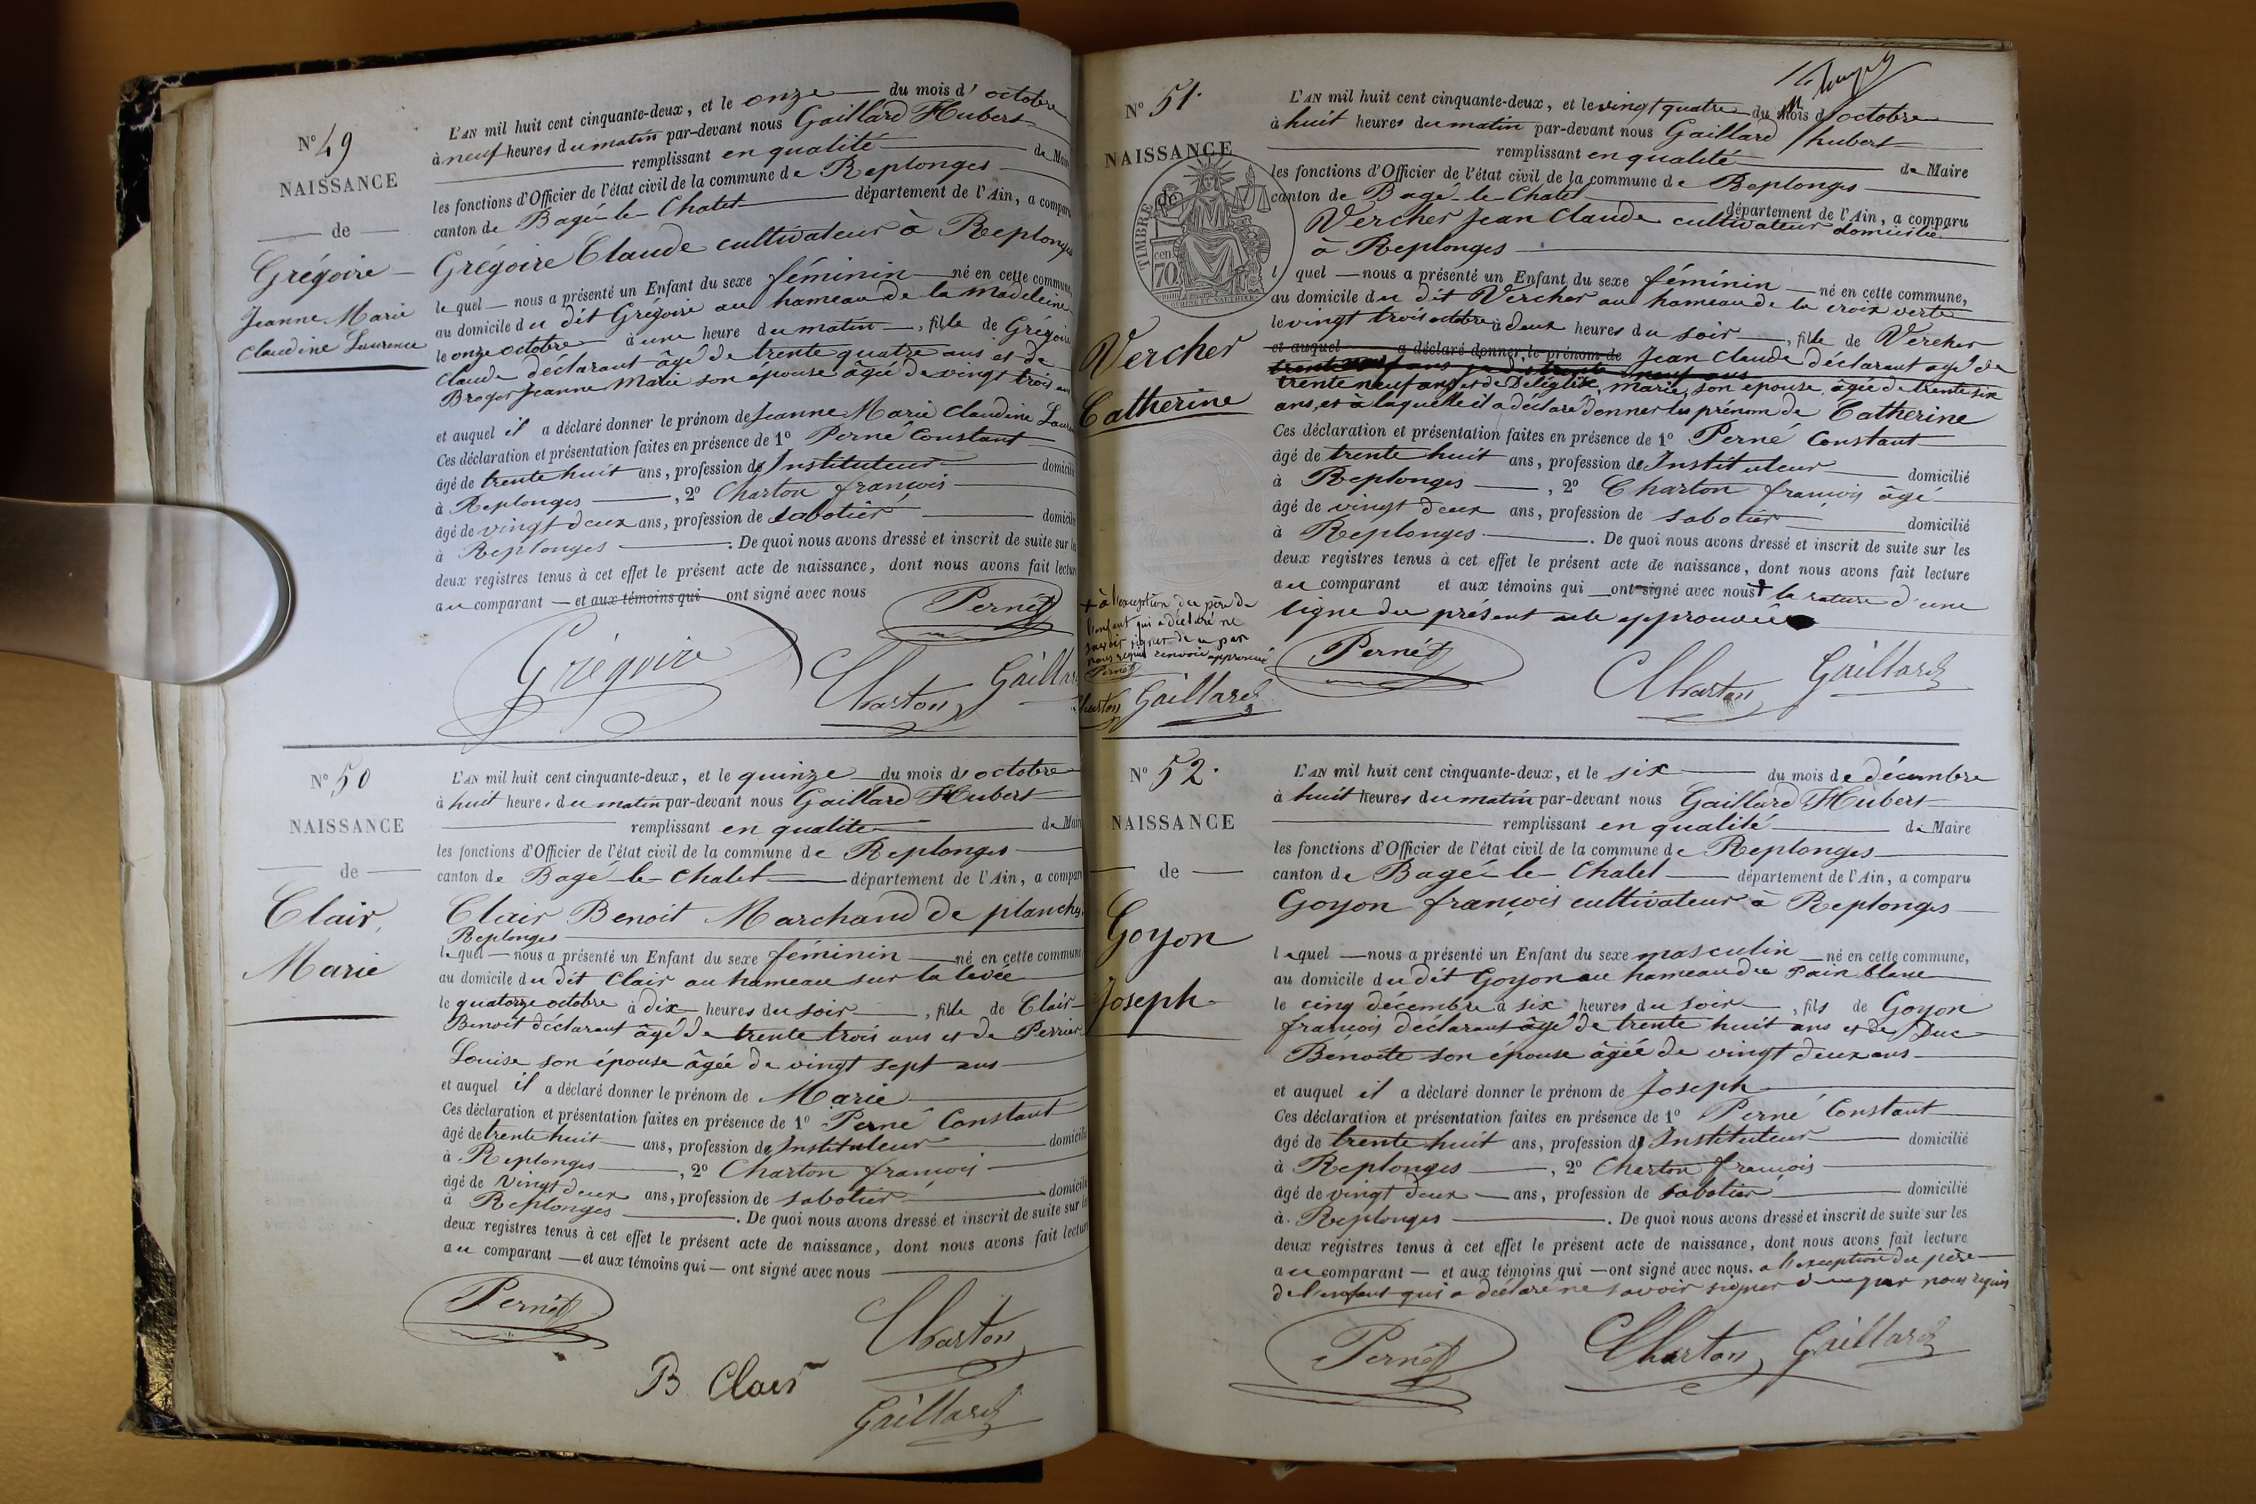 N° 49
NAISSANCE
de
Grégoire
Jeanne Marie
Claudine Laurence
L'AN mil huit cent cinquante-deux, et le onze du mois d' octobre
à neuf heures du matin par-devant nous Gaillard Hubert
remplissant en qualité de Maire
les fonctions d'Officier de l'état civil de la commune de Replonges
canton de Bagé-le-Chatel département de l'Ain, a comparu
Grégoire Claude cultivateur à Replonges
lequel nous a présenté un Enfant du sexe féminin né en cette commune,
au domicile du dit Grégoire au hameau de la Madeleine
le onze octobre à une heure du matin, fille de Grégoire
Claude déclarant âgé de trente quatre ans et de
Broger Jeanne Marie son épouse âgée de vingt trois ans
et auquel il a déclaré donner le prénom de Jeanne Marie Claudine Laur
Ces déclaration et présentation faites en présence de 1° Perné Constant
âgé de trente huit ans, profession d'Instituteur domicilié
à Replonges, 2° Charton françois
âgé de vingt deux ans, profession de sabotier domicilié
à Replonges. De quoi nous avons dressé et inscrit de suite sur les
deux registres tenus à cet effet le présent acte de naissance, dont nous avons fait lecture
au comparant et aux témoins qui ont signé avec nous
Pernet
Grégoire
Charton
Gaillard
N° 50
NAISSANCE
de
Clair,
Marie
L'AN mil huit cent cinquante-deux, et le quinze du mois d'octobre
à huit heures du matin par-devant nous Gaillard Hubert
remplissant en qualité de Maire
les fonctions d'Officier de l'état civil de la commune de Replonges
canton de Bagé-le-Chatel département de l'Ain, a comparu
Clair Benoit Marchand de planches
Replonges
lequel nous a présenté un Enfant du sexe féminin né en cette commune
au domicile du dit Clair au hameau sur la levée
le quatorze octobre à dix heures du soir, fille de Clair
Benoit déclarant âgé de trente trois ans et de Perrier
Louise son épouse âgée de vingt sept ans
et auquel il a déclaré donner le prénom de Marie
Ces déclaration et présentation faites en présence de 1° Perné Constant
âgé de trente huit ans, profession d'Instituteur domicilié
à Replonges, 2° Charton françois
âgé de vingt deux ans, profession de sabotier domicilié
à Replonges. De quoi nous avons dressé et inscrit de suite sur les
deux registres tenus à cet effet le présent acte de naissance, dont nous avons fait lecture
au comparant et aux témoins qui ont signé avec nous
Pernet
Charton
B Clair
Gaillard
N° 51.
NAISSANCE
de
TIMBRE
70 cen
Vercher
Catherine
L'AN mil huit cent cinquante-deux, et le vingt quatre du mois d'octobre
à huit heures du matin par-devant nous Gaillard hubert
remplissant en qualité de Maire
les fonctions d'Officier de l'état civil de la commune de Replonges
canton de Bagé-le-Chatel département de l'Ain, a comparu
Vercher Jean Claude cultivateur domicilié
à Replonges
l quel nous a présenté un Enfant du sexe féminin né en cette commune,
au domicile du dit Vercher au hameau de la croix verte
le vingt trois octobre à deux heures du soir, fille de Vercher
et auquel a déclaré donner le prénom de Jean Claude déclarant agé de
trente neuf ans et de Déléglise, Marie, son épouse, âgée de trente six
ans, et à laquelle il a déclaré donner les prénom de Catherine
Ces déclaration et présentation faites en présence de 1° Perné Constant
âgé de trente huit ans, profession d'Instituteur domicilié
à Replonges, 2° Charton françois âgé
âgé de vingt deux ans, profession de sabotier domicilié
à Replonges. De quoi nous avons dressé et inscrit de suite sur les
deux registres tenus à cet effet le présent acte de naissance, dont nous avons fait lecture
au comparant et aux témoins qui ont signé avec nous + la rature d'une
ligne du présent acte approuvée
+ à l'exception du père de
l'enfant qui a déclaré ne
savoir signer de ce par
nous requis renvoi approuvé
Pernet
Charton Gaillard
Pernet
Charton
Gaillard
N° 52.
NAISSANCE
de
Goyon
Joseph
L'AN mil huit cent cinquante-deux, et le six du mois de décembre
à huit heures du matin par-devant nous Gaillard Hubert
remplissant en qualité de Maire
les fonctions d'Officier de l'état civil de la commune de Replonges
canton de Bagé-le-Chatel département de l'Ain, a comparu
Goyon françois cultivateur à Replonges
lequel nous a présenté un Enfant du sexe masculin né en cette commune,
au domicile du dit Goyon au hameau du Pain blanc
le cinq décembre à six heures du soir, fils de Goyon
françois déclarant âgé de trente huit ans et de Duc
Benoite son épouse âgée de vingt deux ans
et auquel il a déclaré donner le prénom de Joseph
Ces déclaration et présentation faites en présence de 1° Perné Constant
âgé de trente huit ans, profession d'Instituteur domicilié
à Replonges, 2° Charton françois
âgé de vingt deux ans, profession de sabotier domicilié
à Replonges. De quoi nous avons dressé et inscrit de suite sur les
deux registres tenus à cet effet le présent acte de naissance, dont nous avons fait lecture
au comparant et aux témoins qui ont signé avec nous. a l'exception du père
de l'enfant qui a déclaré ne savoir signer de ce par nous requis
Pernet
Charton
Gaillard